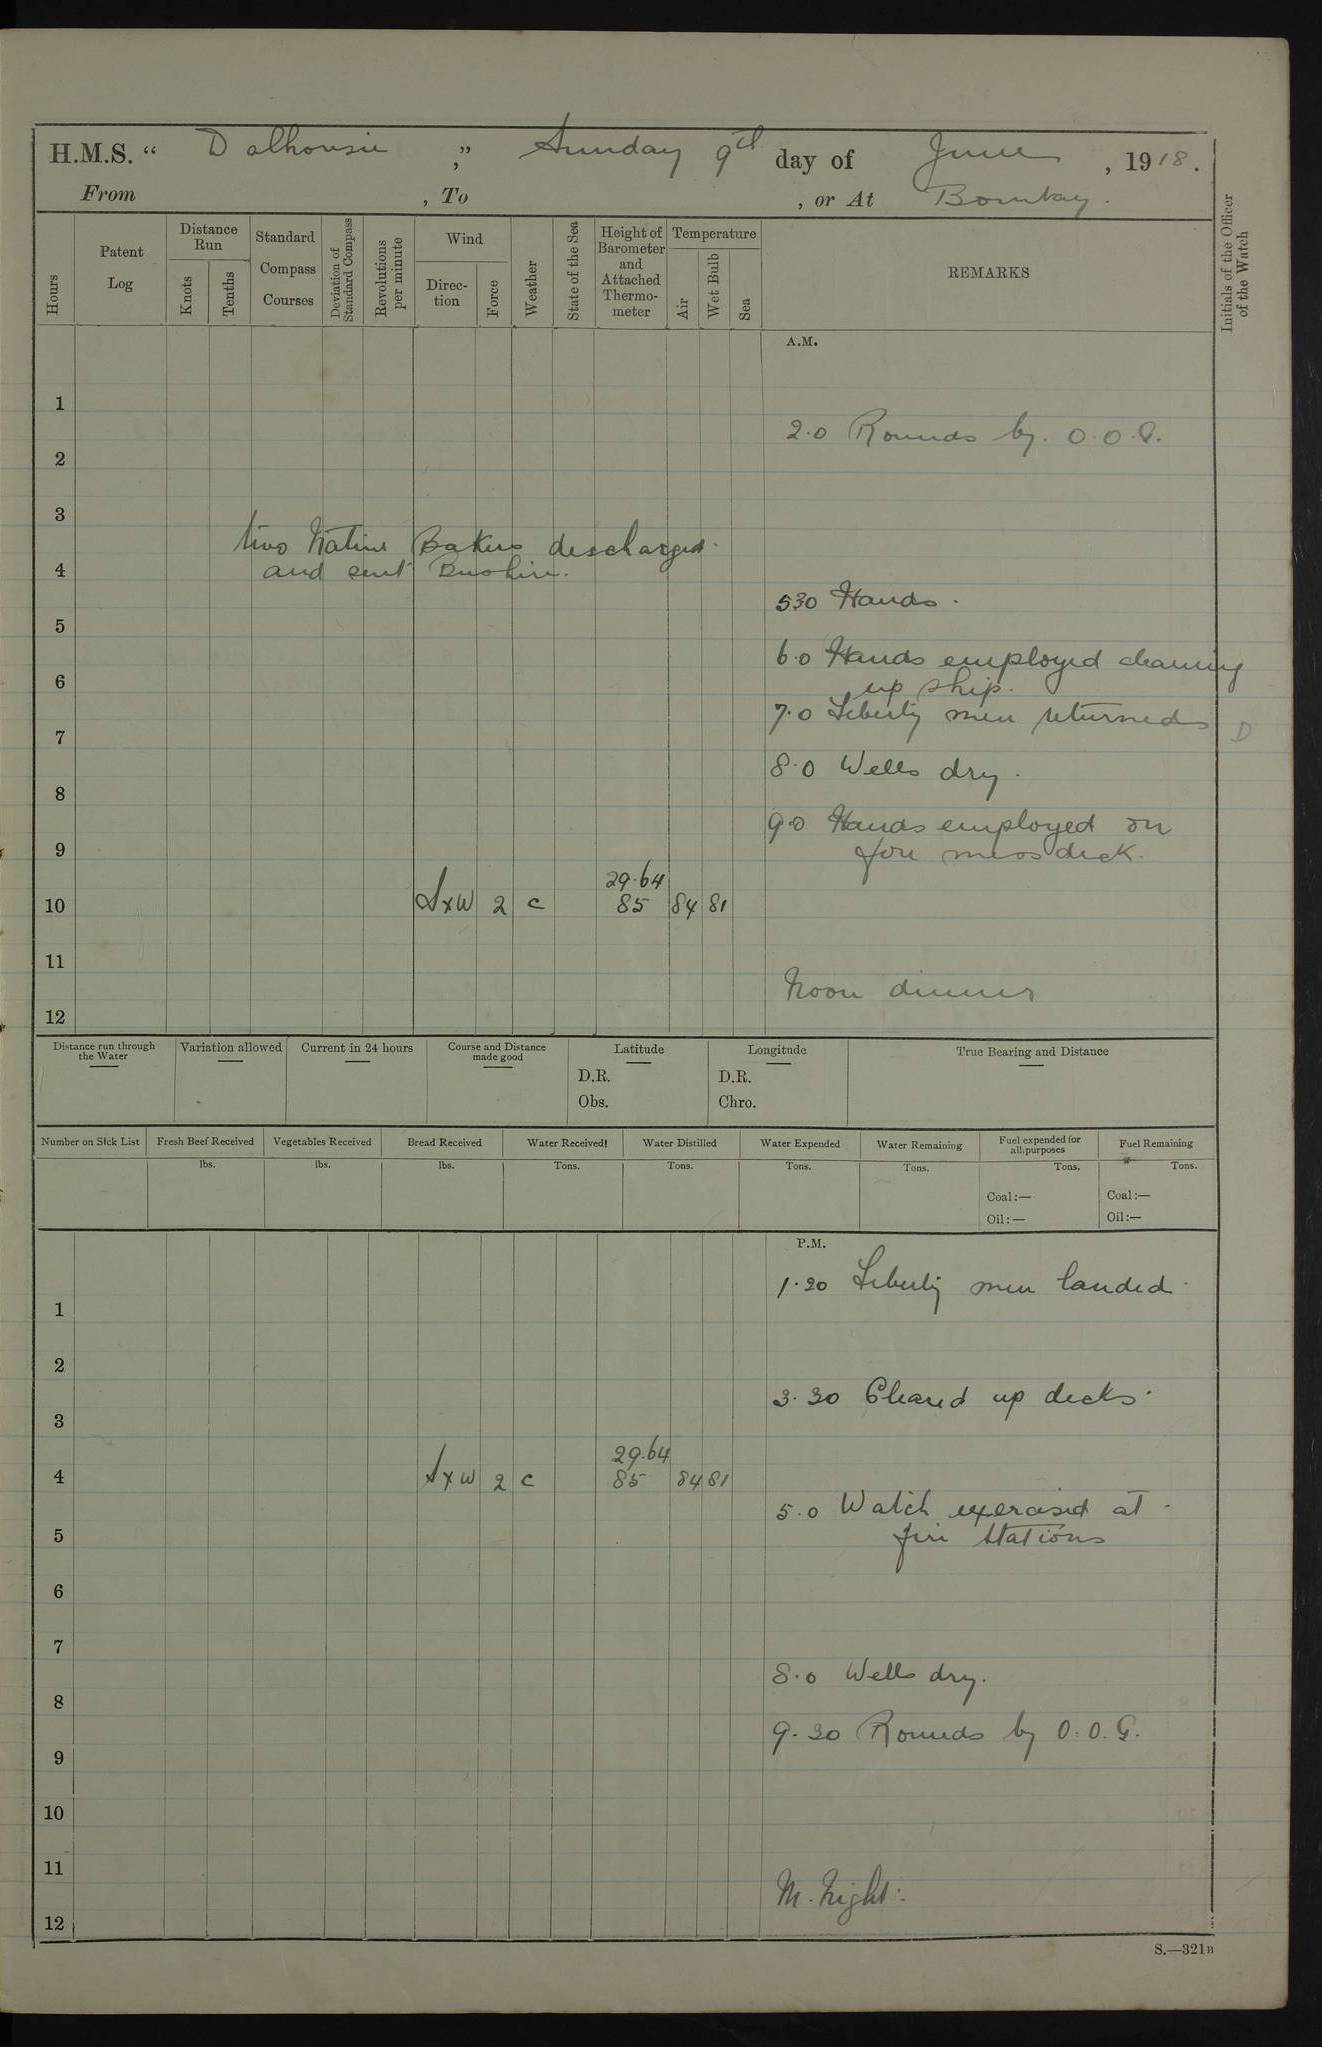 H.M.S. “ Dalhousie ,” Sunday 9th day of June , 1918.
From , To , or At Bombay.
Hours
Patent Log
Distance Run
Knots
Tenths
Standard Compass Courses
Deviation of Standard Compass
Revolutions per minute
Wind
Direc-tion
Force
Weather
State of the Sea
Height of Barometer and Attached Thermo-meter
Temperature
Air
Wet Bulb
Sea
REMARKS
Initials of the Officer of the Watch
A.M.
1
2.0 Rounds by. O.O.G.
2
3
two Native Bakers discharged.
and sent Bushire.
4
530 Hands.
5
6.0 Hands employed cleaning
up ship.
6
7.0 Liberty men returned
D
7
8.0 Wells dry.
8
9.0 Hands employed on
fore mess deck.
9
29.64
10 SxW 2 c 85 84 81
11
Noon dinner
12
Distance run through the Water
Variation allowed
Current in 24 hours
Course and Distance made good
Latitude
D.R.
Obs.
Longitude
D.R.
Chro.
True Bearing and Distance
Number on Sick List
Fresh Beef Received
lbs.
Vegetables Received
lbs.
Bread Received
lbs.
Water Received
Tons.
Water Distilled
Tons.
Water Expended
Tons.
Water Remaining
Tons.
Fuel expended for all purposes
Tons.
Coal:—
Oil:—
Fuel Remaining
Tons.
Coal:—
Oil:—
P.M.
1.20 Liberty men landed.
1
2
3.30 Cleared up decks.
3
29.64
4 SxW 2 c 85 84 81
5.0 Watch exercised at
fire stations
5
6
7
8.0 Wells dry.
8
9.30 Rounds by O.O.G.
9
10
11
M. Night.
12
S.—321B